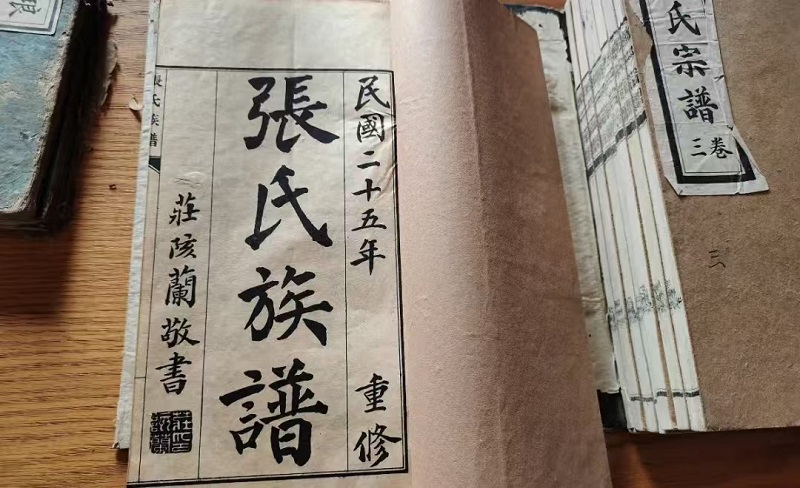 民國二十五年 重修
張氏族譜
莊陔蘭敬書
張氏族譜
氏宗譜
卷三
三